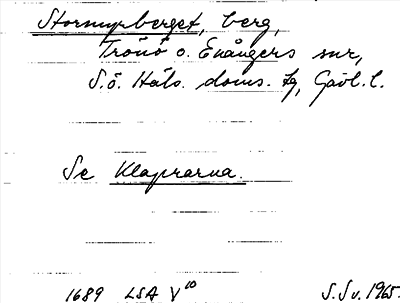 Stormyrberget, berg,
Trönö o. Enångers snr,
S.ö. Häls. doms. fg, Gävl. l.
Se Klaprarna.
1689 LSA V¹⁰ S. Sv. 1965.